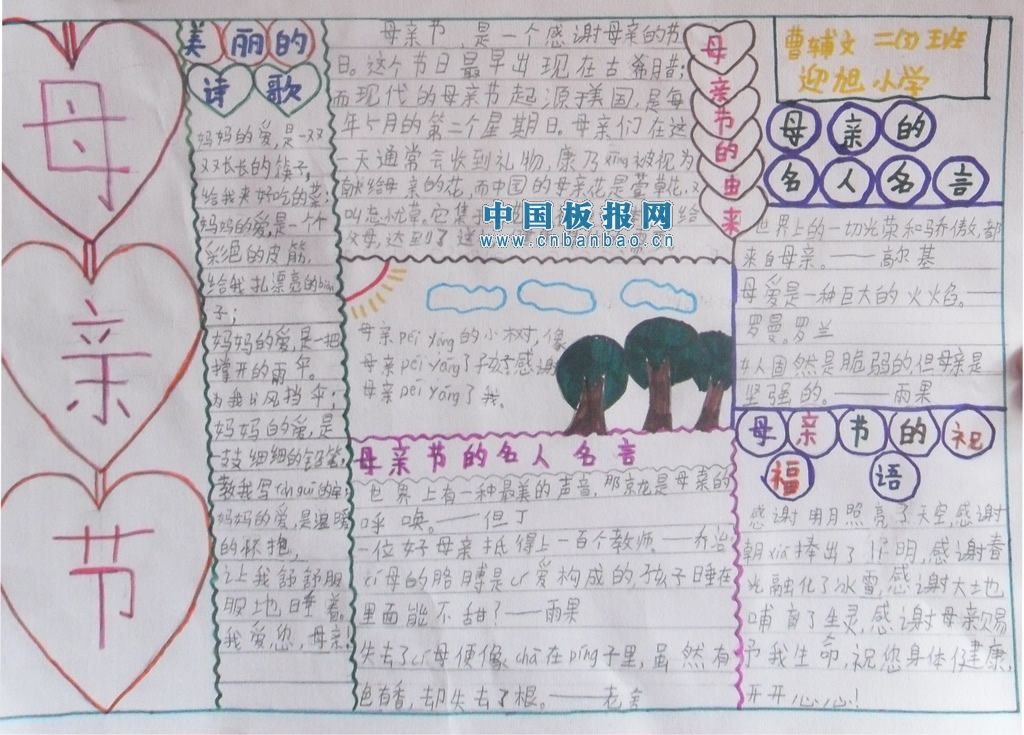 母
亲
节
美丽的
诗歌
妈妈的爱,是一双
双长长的筷子,
给我夹好吃的菜;
妈妈的爱,是一个
彩色的皮筋,
给我扎漂亮的biàn
子;
妈妈的爱,是一把
撑开的雨伞。
为我 风挡伞;
妈妈的爱,是
一支细细的铅笔,
教我写 的字;
妈妈的爱,是温暖
的怀抱,
让我舒舒服
服地睡着。
我爱您,母亲!
母亲节,是一个感谢母亲的节
日。这个节日最早出现在古希腊;
而现代的母亲节起源于美国,是每
年5月的第二个星期日。母亲们在这
一天通常会收到礼物,康乃xīng被视为
献给母亲的花,而中国的母亲花是萱草花,又
叫忘忧草。它集 给
父母,达到了
中国板报网
www.cnbanbao.cn
母亲节的由来
母亲péi yǎng的小树,像
母亲péi yǎng了孩子感谢
母亲péi yǎng了我。
母亲节的名人名言
世界上有一种最美的声音,那 是母亲的
呼唤。——但丁
一位好母亲抵得上一百个教师。——乔治
cí母的胳膊是cí爱构成的,孩子睡在
里面能不甜?——雨果
失去了cí母便像 chā在píng子里,虽然有
色有香,却失去了根。——老舍
曹辅文 二(7)班
迎旭小学
母亲的
名人名言
世界上的一切光荣和骄傲,都
来自母亲。——高尔基
母爱是一种巨大的火焰。——
罗曼。罗兰
女人固然是脆弱的,但母亲是
坚强的。——雨果
母亲节的祝
福语
感谢 月照亮了天空,感谢
朝xiá捧出了 明,感谢春
光融化了冰雪,感谢大地
哺育了生灵,感谢母亲赐
予我生命,祝您身体健康,
开开心心!